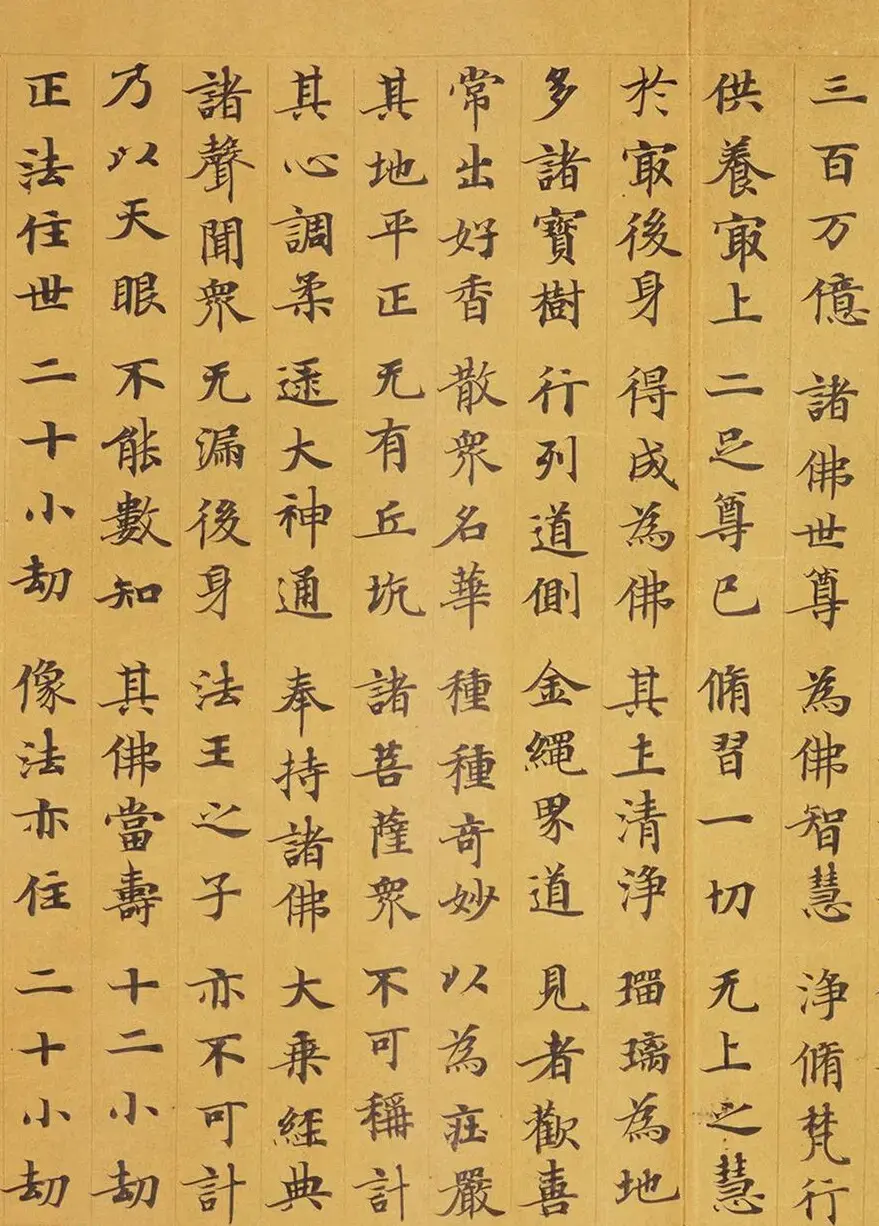 三百万億 諸佛世尊 為佛智慧 淨脩梵行
供養㝡上 二足尊已 脩習一切 无上之慧
於㝡後身 得成為佛 其土清淨 瑠璃為地
多諸寶樹 行列道側 金繩界道 見者歡喜
常出好香 散衆名華 種種奇妙 以為莊嚴
其地平正 无有丘坑 諸菩薩衆 不可稱計
其心調柔 逮大神通 奉持諸佛 大乘經典
諸聲聞衆 无漏後身 法王之子 亦不可計
乃以天眼 不能數知 其佛當壽 十二小劫
正法住世 二十小劫 像法亦住 二十小劫